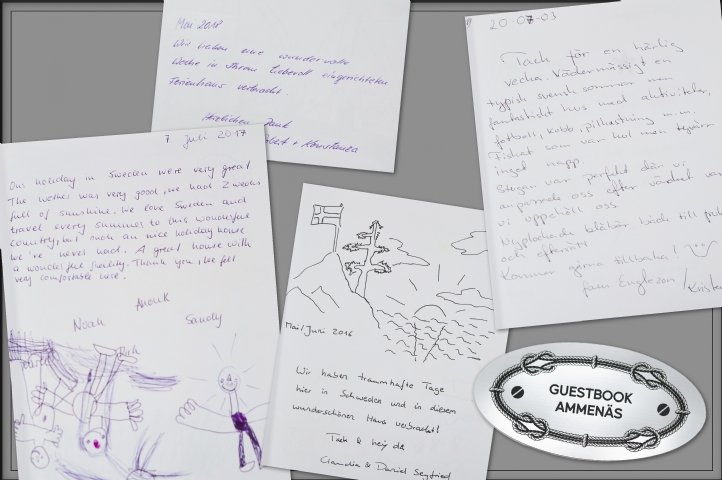 Mai 2018
Wir haben eine wundervolle
Woche in Ihrem liebevoll eingerichteten
Ferienhaus verbracht.
Herzlichen Dank
+ Konstanze
7 Juli 2017
Our holiday in Sweden were very great
The wether was very good, we had 2 weeks
full of sunshine. We love Sweden and
travel every summer to this wonderful
country, but such an nice holiday house
we've never had. A great house with
a wonderful facility. Thank you, we felt
very comfortable here.
Anouk
Noah
Sandy
Mai/Juni 2016
Wir haben traumhafte Tage
hier in Schweden und in diesem
wunderschönen Haus verbracht!
Tack & hej då
Claudia & Daniel Seyfried
20-07-03
Tack för en härlig
vecka. Vädermässigt en
typisk svensk sommar men
fantastiskt hus med aktiviteter,
fotboll, kubb, pilkastning m.m.
Fisket som var kul men tyvärr
inget napp.
Stugan var perfekt där vi
anpassade oss efter vädret var
vi uppehöll oss
Nyplockade blåbär både till
och efterrätt
Kommer gärna tillbaka!
fam Englozon /
GUESTBOOK
AMMENÄS